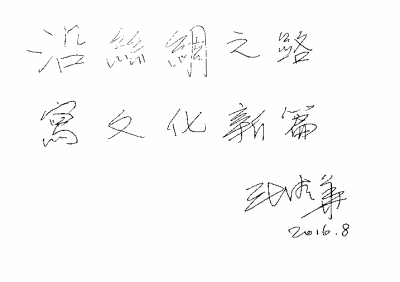 沿絲綢之路
寫文化新篇
2016.8